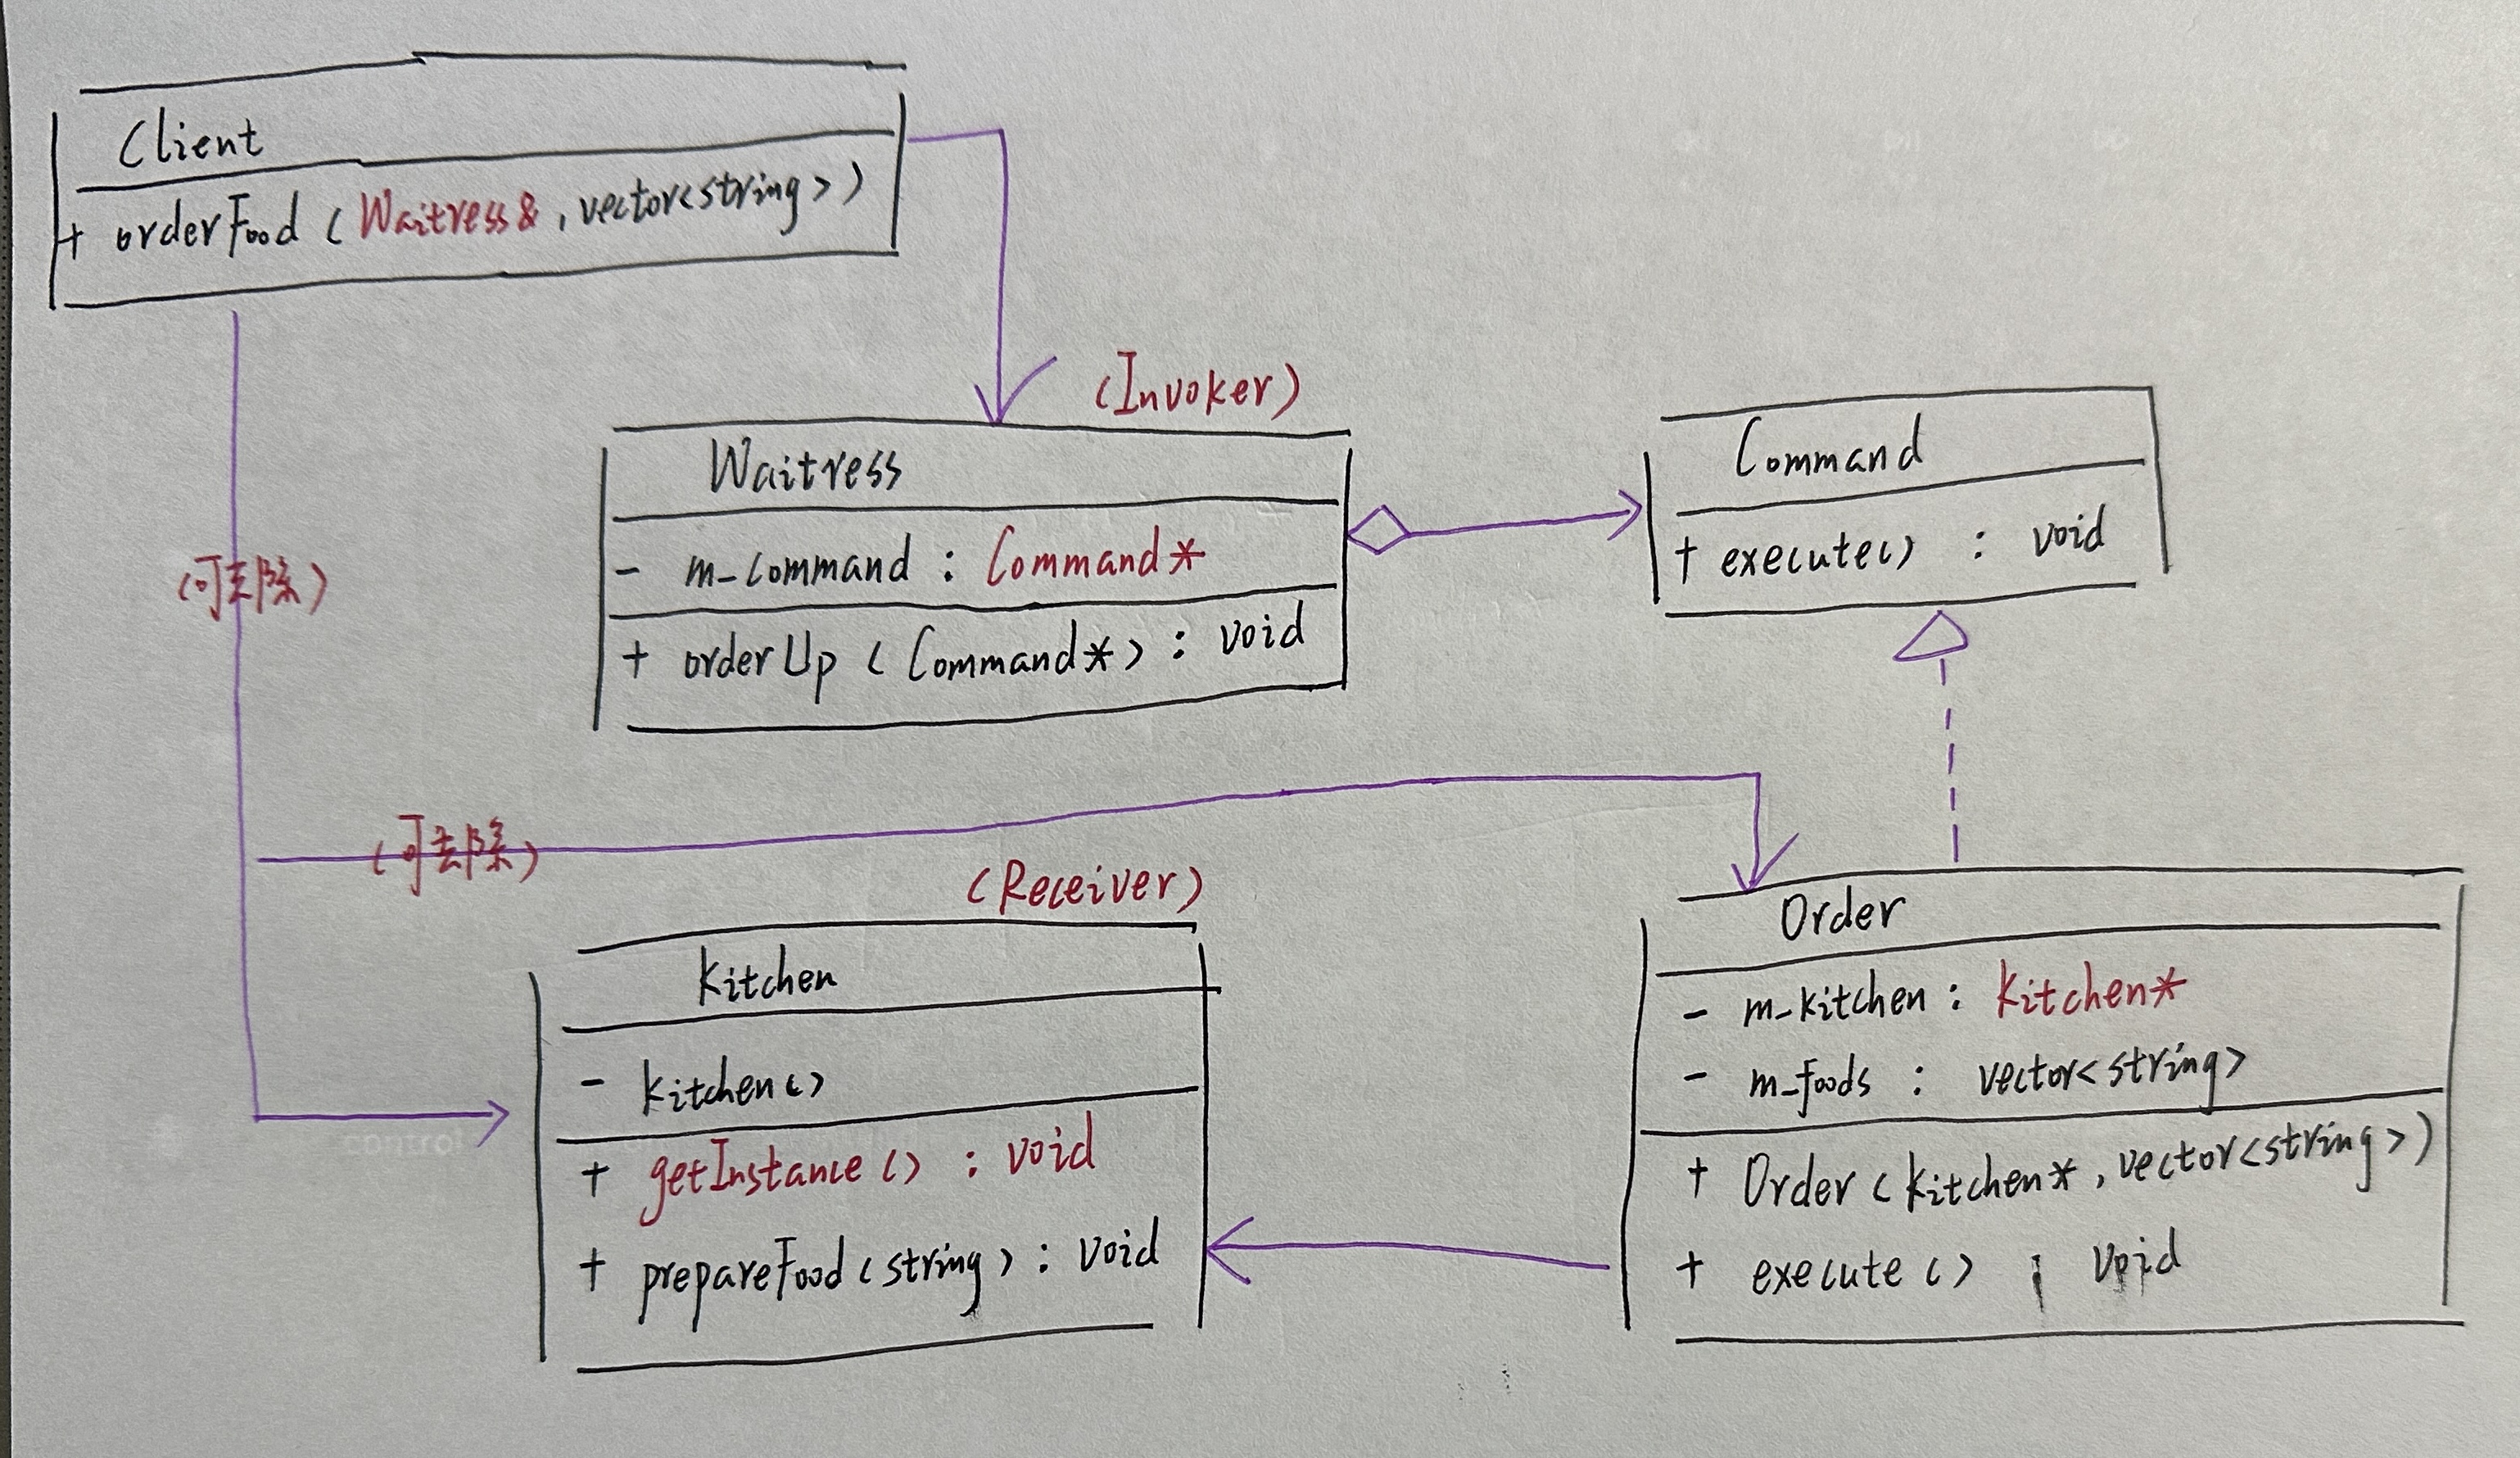 Client
+ orderFood (Waitress&, vector<string>)
(Invoker)
Waitress
- m_command : Command*
+ orderUp (Command*) : void
Command
+ execute() : void
(可去除)
(可去除)
(Receiver)
Kitchen
- Kitchen()
+ getInstance() : void
+ prepareFood(string) : void
Order
- m_kitchen : Kitchen*
- m_foods : vector<string>
+ Order (Kitchen*, vector<string>)
+ execute () : void